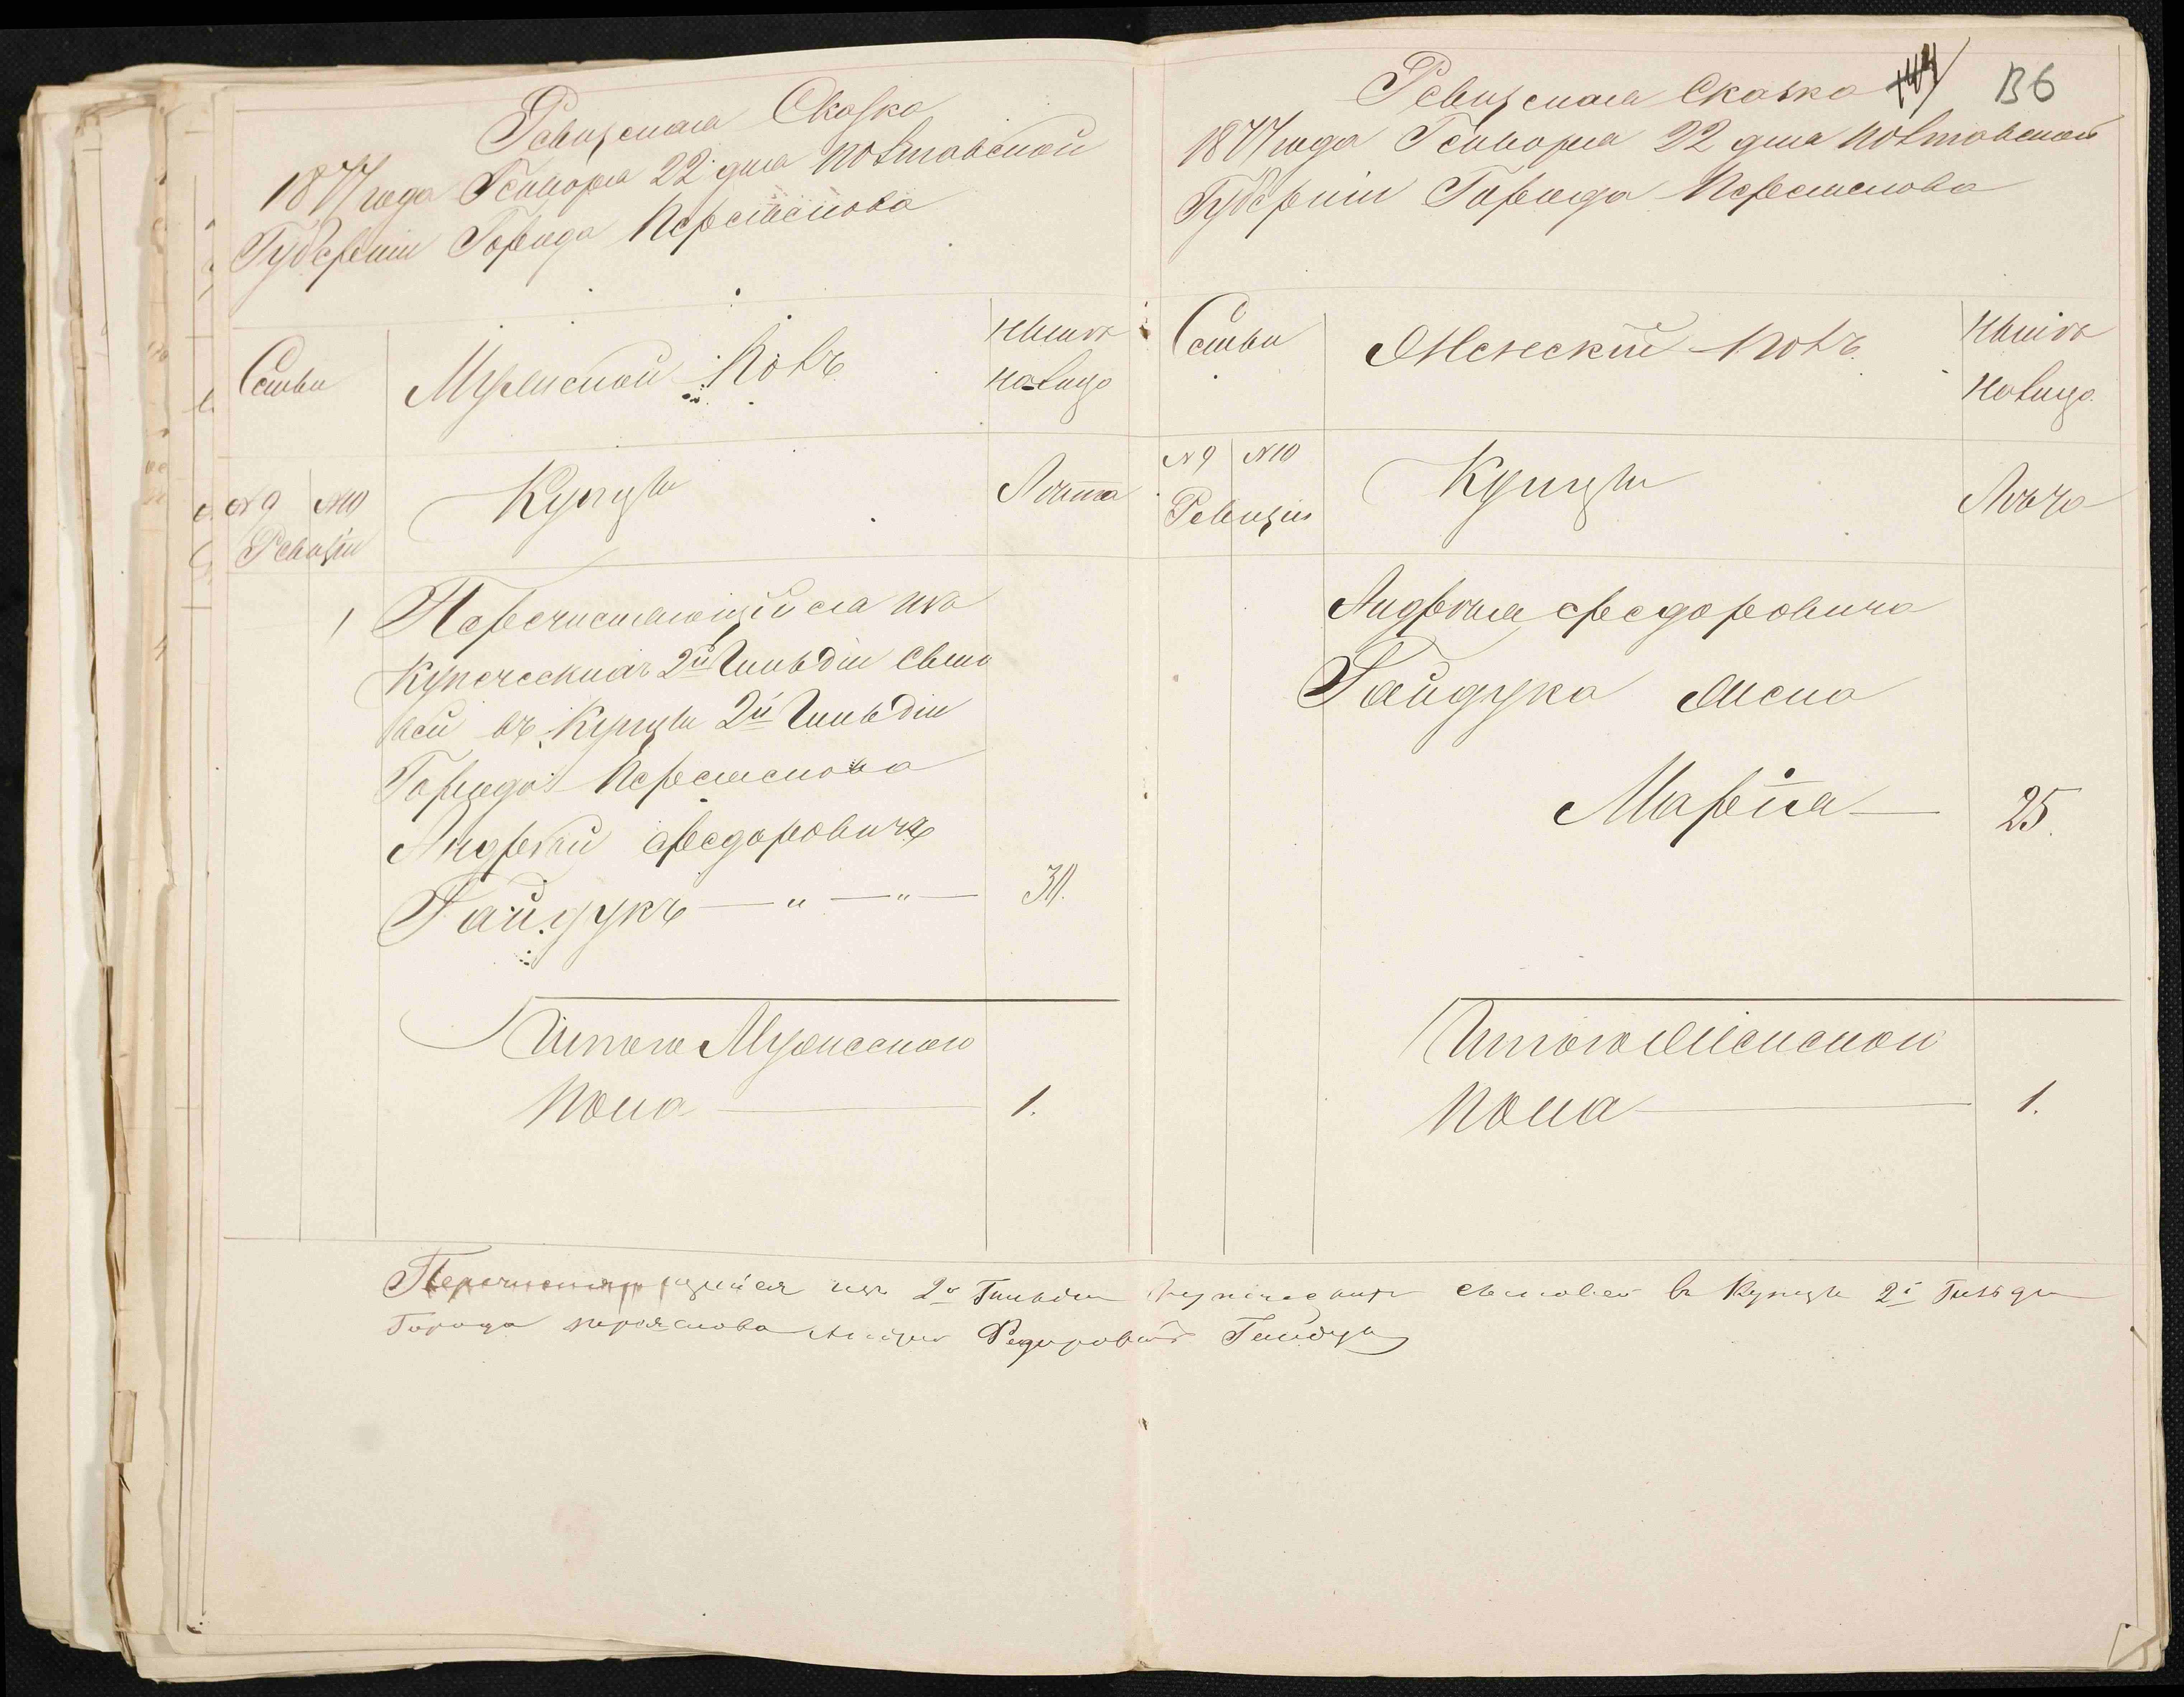 Ревизская Сказка
1877 года Генваря 22 дня Полтавской
Губернiи Города Переяслова
Семьи
Мужской Полъ
Нынѣ
налицо
№ 9 №10
Ревизiи
Купцы
Лѣта
1 Перечисляющiйся изъ
Купеческихъ 2й Гильдiи сыно
вей въ Купцы 2й Гильдiи
Города Переяслова
Андрей Федоровичъ
Гайдукъ — " — " — 31.
Итого Мужескаго
Пола — 1.
Ревизская Сказка 136
1877 года Генваря 22 дня Полтавской
Губернiи Города Переяслова
Семьи
Женскiй Полъ
Нынѣ
налицо
№ 9 №10
Ревизiи
Купцы
Лѣта
Андрея Федоровича
Гайдука жена
Марiя — 25.
Итого Женскаго
Пола — 1.
Перечисляющийся изъ 2й Гильдiи Купеческихъ сыновей въ Купцы 2й Гильдiи
Города Переяслова Андрей Федоровичъ Гайдукъ